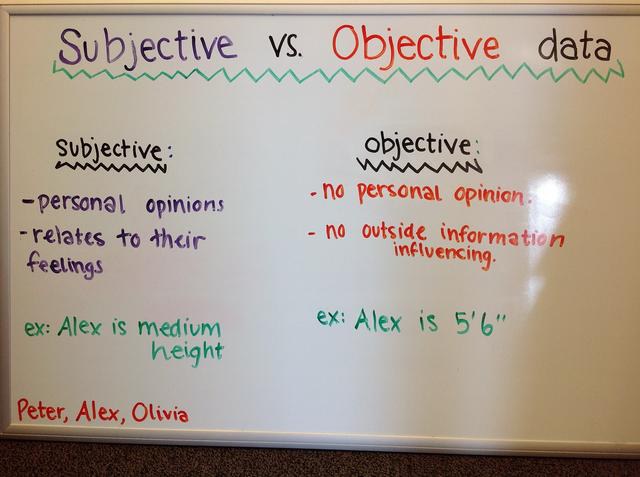 Subjective vs. Objective data
Subjective:
-personal opinions
-relates to their
feelings
ex: Alex is medium
height
objective:
- no personal opinion.
- no outside information
influencing.
ex: Alex is 5'6"
Peter, Alex, Olivia